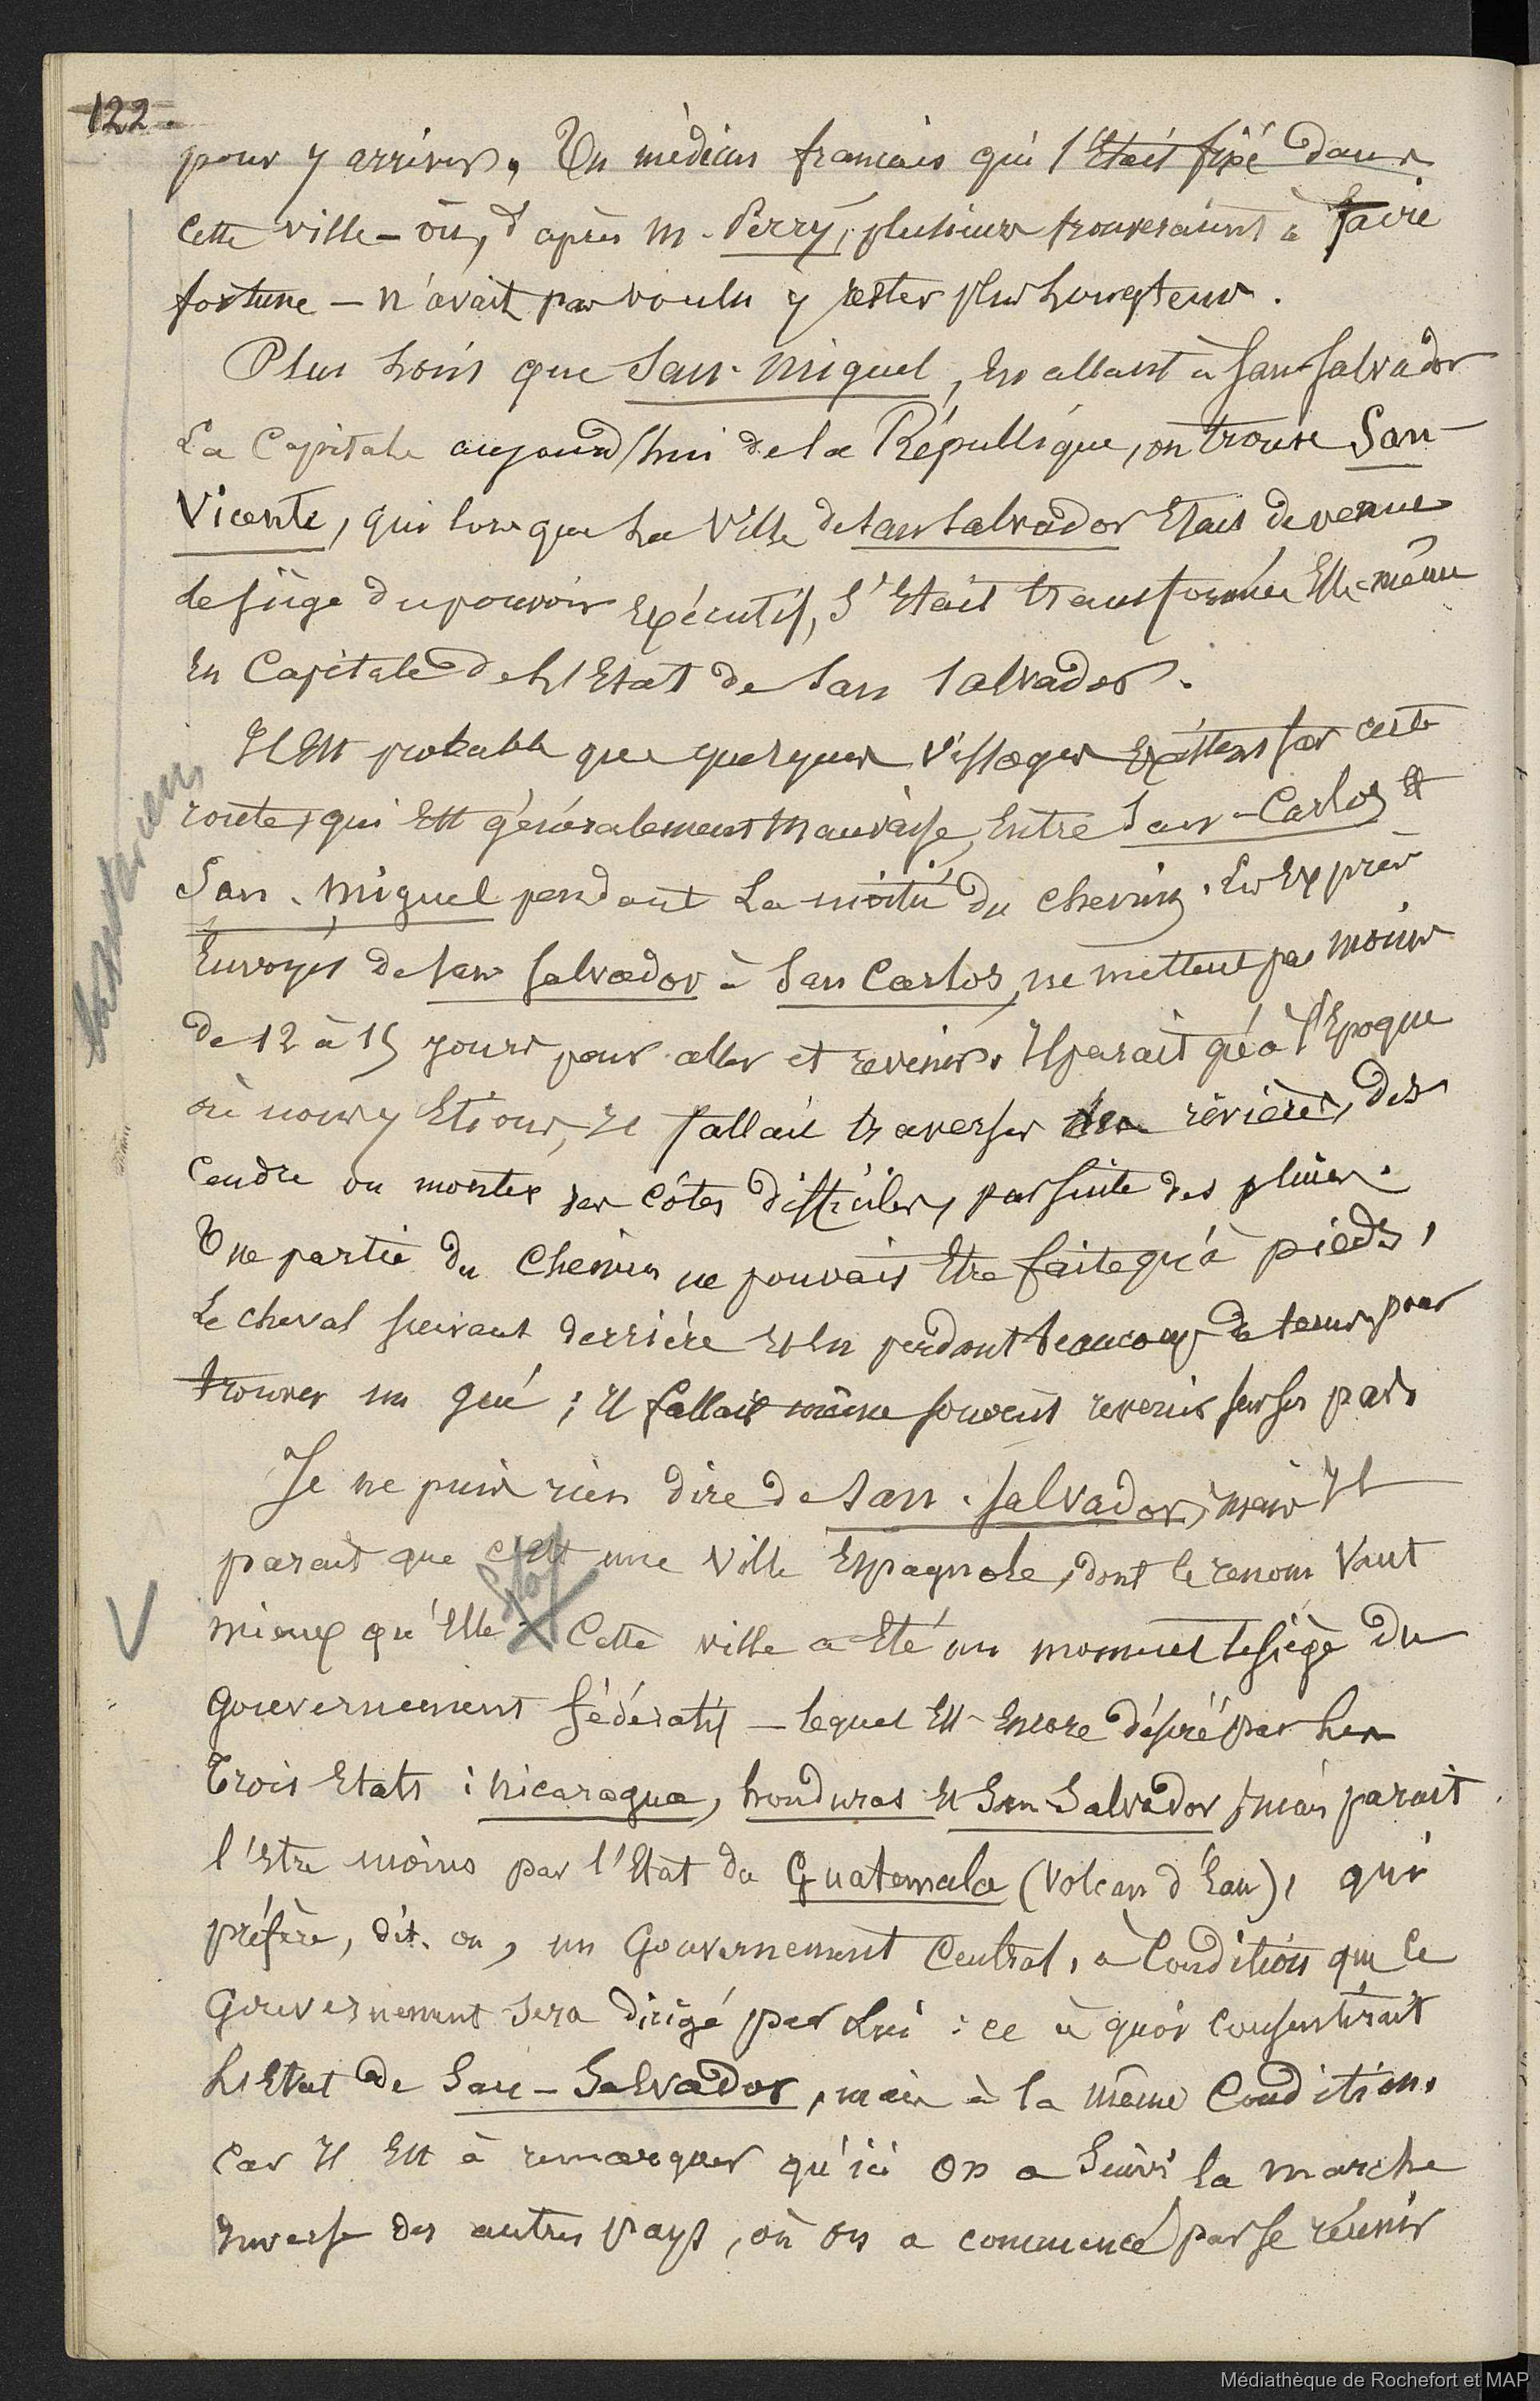 122.
pour y arriver. Un médecin francais qui s'Etait fixé dans
cette ville – où, d'après M. Perry, plusieurs trouveraient à faire
fortune – n'avait pas voulu y rester plus longtems.
Plus loin que San-Miguel, En allant à San-Salvador
La Capitale aujourd'hui de la République, on trouve San-
Vicente, qui lorsque La Ville de San Salvador Etait devenue
le siège du pouvoir Exécutif, s'Etait transformée Elle-même
En Capitale de L'Etat de San Salvador.
Il Est probable que quelques Villages Existent sur cette
route, qui Est généralement Mauvaise, Entre San-Carlos Et
San-Miguel pendant La moitié du chemin. Les Exprès
Envoyés de San Salvador à San Carlos, ne mettent pas moins
de 12 à 15 jours pour aller et revenir. Il parait qu'à l'Epoque
où nous y Etions, Il fallait traverser des rivières, des
cendre ou monter des Côtes difficiles, par suite des pluies.
Une partie du Chemin ne pouvait Etre faite qu'à pieds,
Le cheval suivant derrière Et En perdant beaucoup de tems pour
trouver un gué ; Il fallait même souvent revenir sur ses pas.
Je ne puis rien dire de San-Salvador, mais Il
parait que c'Est une Ville Espagnole, dont le renom Vaut
mieux qu'Elle. Cette ville a Eté un moment le siège du
Gouvernement fédératif – lequel Est Encore désiré par Les
Trois Etats : Nicaragua, honduras Et San Salvador, mais parait
l'Etre moins par l'Etat de Guatemala (Volcan d'Eau), qui
préfère, dit-on, un Gouvernement Central, à Condition que le
Gouvernement sera dirigé par Lui : ce à quoi consentirait
L'Etat de San-Salvador, mais à la même Condition.
Car Il Est à remarquer qu'ici On a Suivi la marche
Inverse des autres Pays, où On a commencé par se réunir
Médiathèque de Rochefort et MAP